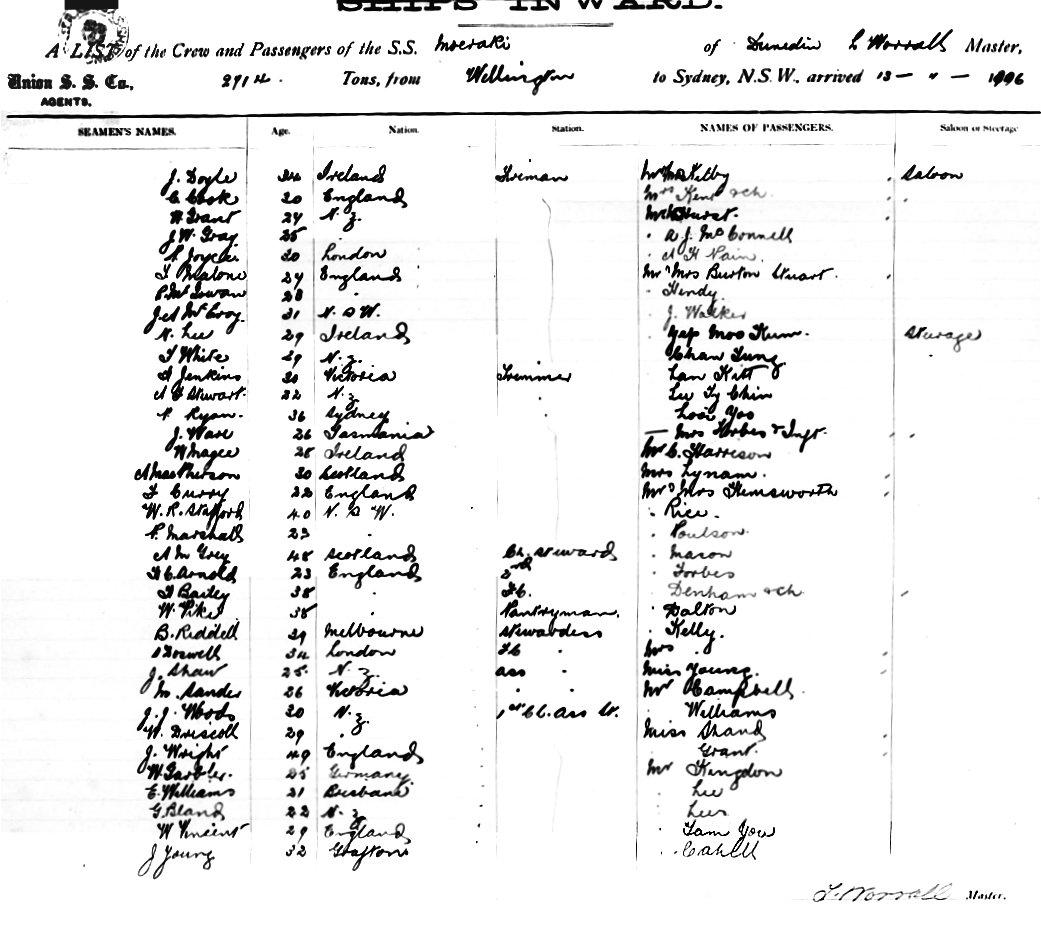 SHIPS INWARD.
A LIST of the Crew and Passengers of the S.S. Moeraki of Dunedin Worrall Master,
Union S. S. Co., 2914. Tons, from Wellington to Sydney, N.S.W., arrived 13 — 11 —
AGENTS.
SEAMEN'S NAMES. Age. Nation. Station. NAMES OF PASSENGERS. Saloon or Steerage
J. Doyle Ireland Fireman Mr Mrs Kilby Saloon
C Cook England Mrs Kent & ch
W Grant 24 N. Z. Hurst.
J. W. Gray A. J. McConnell
London A H Pain.
Malone England Mr & Mrs Burton Stuart
28 Hendy.
J. A McEvoy 31 N. S W. J. Walker
N. Lee 29 Ireland Yap Moo Kum. Steerage
T White 29 N. Z. Chan Tung
A Jenkins Victoria Trimmer Lan Kitt
Stewart 22 N. Z. Lee Ty Chin
P. Ryan. 36 Sydney Looi Yos
J. Ware 26 Tasmania — Mrs Forbes & Inft.
W Magee 28 Ireland Mr C. Harrison
A MacPherson 30 Scotland Mrs Lynam.
T Curry 22 England Mr & Mrs Hemsworth
W. R. Stafford 40 N. S W. Rice.
P. Marshall 23 Poulson.
A M Grey 48 Scotland Ch. Steward Mason
Arnold 23 England 2nd Forbes
T Bailey 38 F.C. Denham & ch
W. Pike 38 Pantryman. Dalton
B. Riddell 29 Melbourne Stewardess Kelly.
Boswell 34 London FC Mrs
J. Shaw 25. N. Z. ass Miss Young.
M. Sander 26 Victoria Mr Campbell.
J. J. Woods 20 N. Z. 1st Cl. ass St. Williams
W. Driscoll 29 Miss Shand
J. Wright 49 England Grant.
W. 25 Germany Mr Kingdon
E. Williams 21 Brisbane Lee
G. Bland 22 N. Z. Lees
W Vincent 29 England Tam You
J Young 32 Grafton Cahill
Worrall Master.